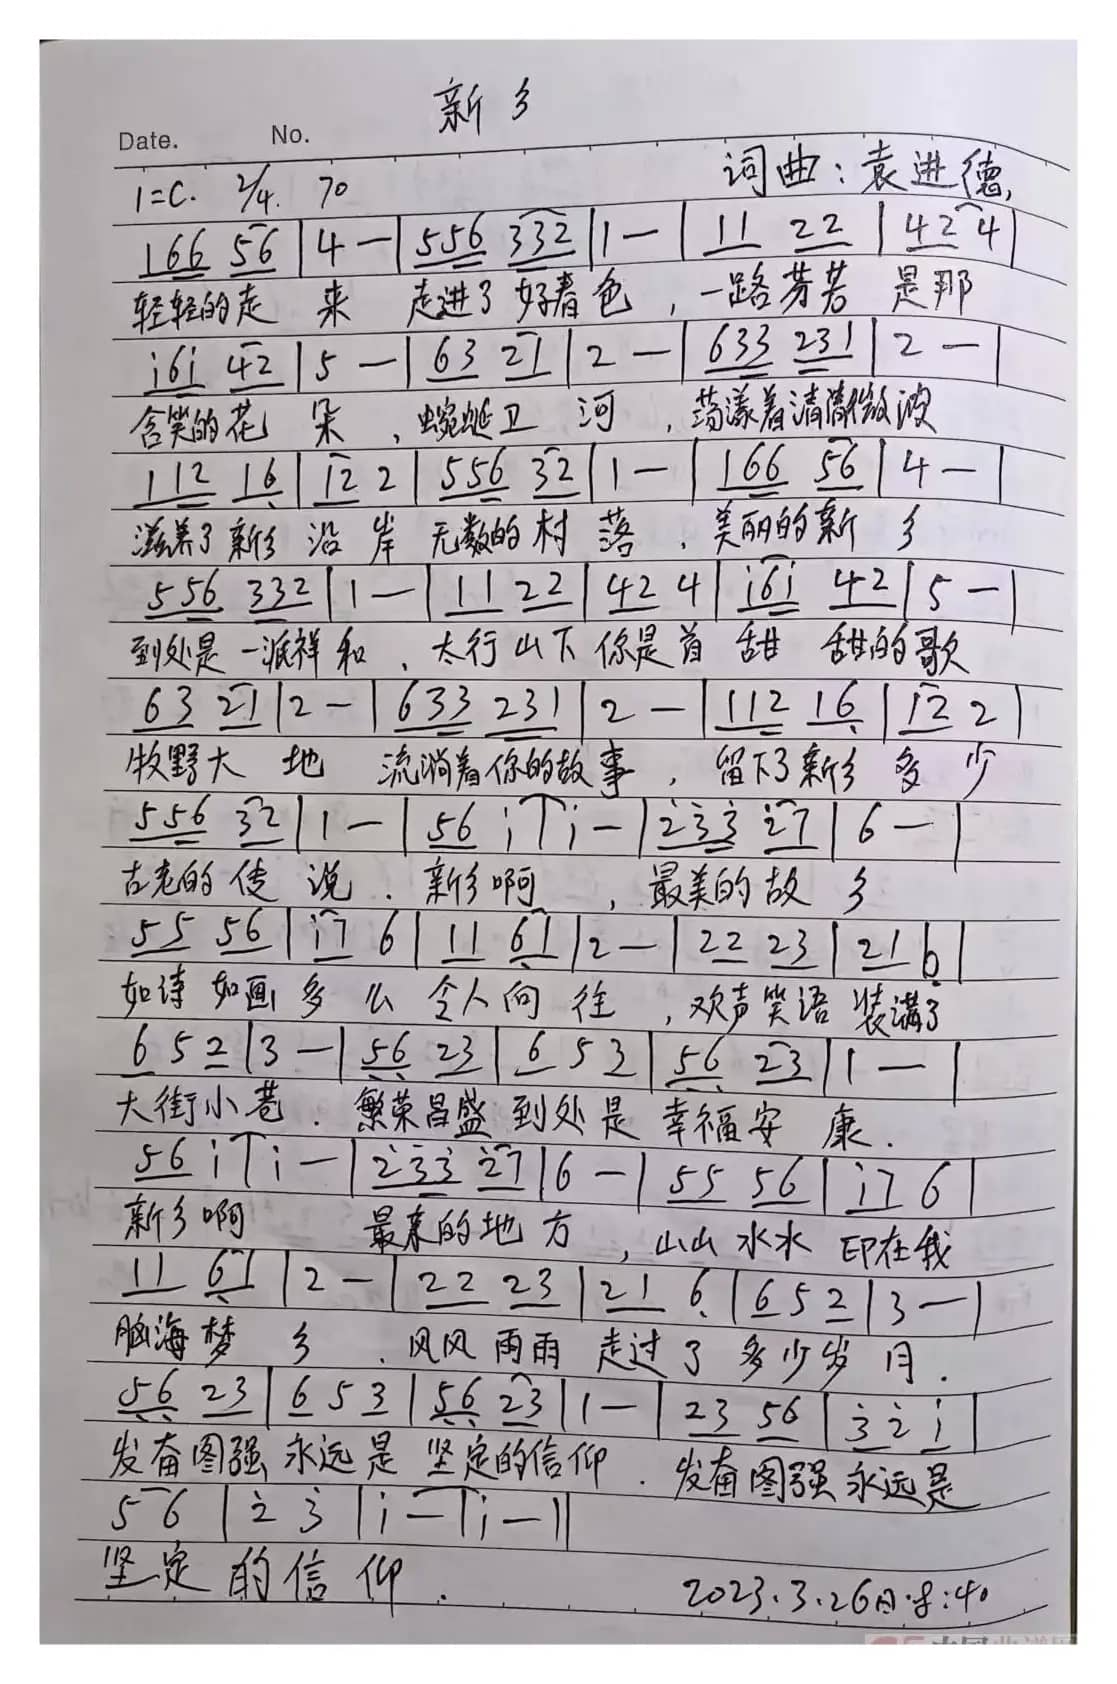 新乡
Date. No.
1=C. 2/4. 70 词曲：袁进德
166 56 | 4 — | 556 332 | 1 — | 11 22 | 42 4 |
轻轻的走 来 走进了好春色，一路芳芳 是那
i6i 42 | 5 — | 63 21 | 2 — | 633 231 | 2 — |
含笑的花 朵，蜿蜒卫 河，荡漾着清清微波
112 16 | 12 2 | 556 32 | 1 — | 166 56 | 4 — |
滋养了新乡 沿 岸 无数的村 落．美丽的新 乡
556 332 | 1 — | 11 22 | 42 4 | i6i 42 | 5 — |
到处是一派祥和．太行山下你是首 甜 甜的歌
63 21 | 2 — | 633 231 | 2 — | 112 16 | 12 2 |
牧野大 地 流淌着你的故事，留下了新乡 多 少
556 32 | 1 — | 56 i | i — | 233 27 | 6 — |
古老的传 说．新乡啊，最美的故 乡
55 56 | i7 6 | 11 61 | 2 — | 22 23 | 21 6 |
如诗 如画 多 么 令人向 往，欢声笑语 装满了
6 5 2 | 3 — | 56 23 | 6 5 3 | 56 23 | 1 — |
大街小巷．繁荣昌盛 到处是 幸福安 康．
56 i | i — | 233 27 | 6 — | 55 56 | i7 6 |
新乡啊 最亲的地 方，山山水水 印在我
11 61 | 2 — | 22 23 | 21 6 | 6 5 2 | 3 — |
脑海梦 乡．风风雨雨 走过了 多少岁 月．
56 23 | 6 5 3 | 56 23 | 1 — | 23 56 | 3 2 i |
发奋图强 永远是 坚定的信仰．发奋图强永远是
5 6 | 2 3 | i — | i — ||
坚定的信仰．
2023.3.26日.8:40